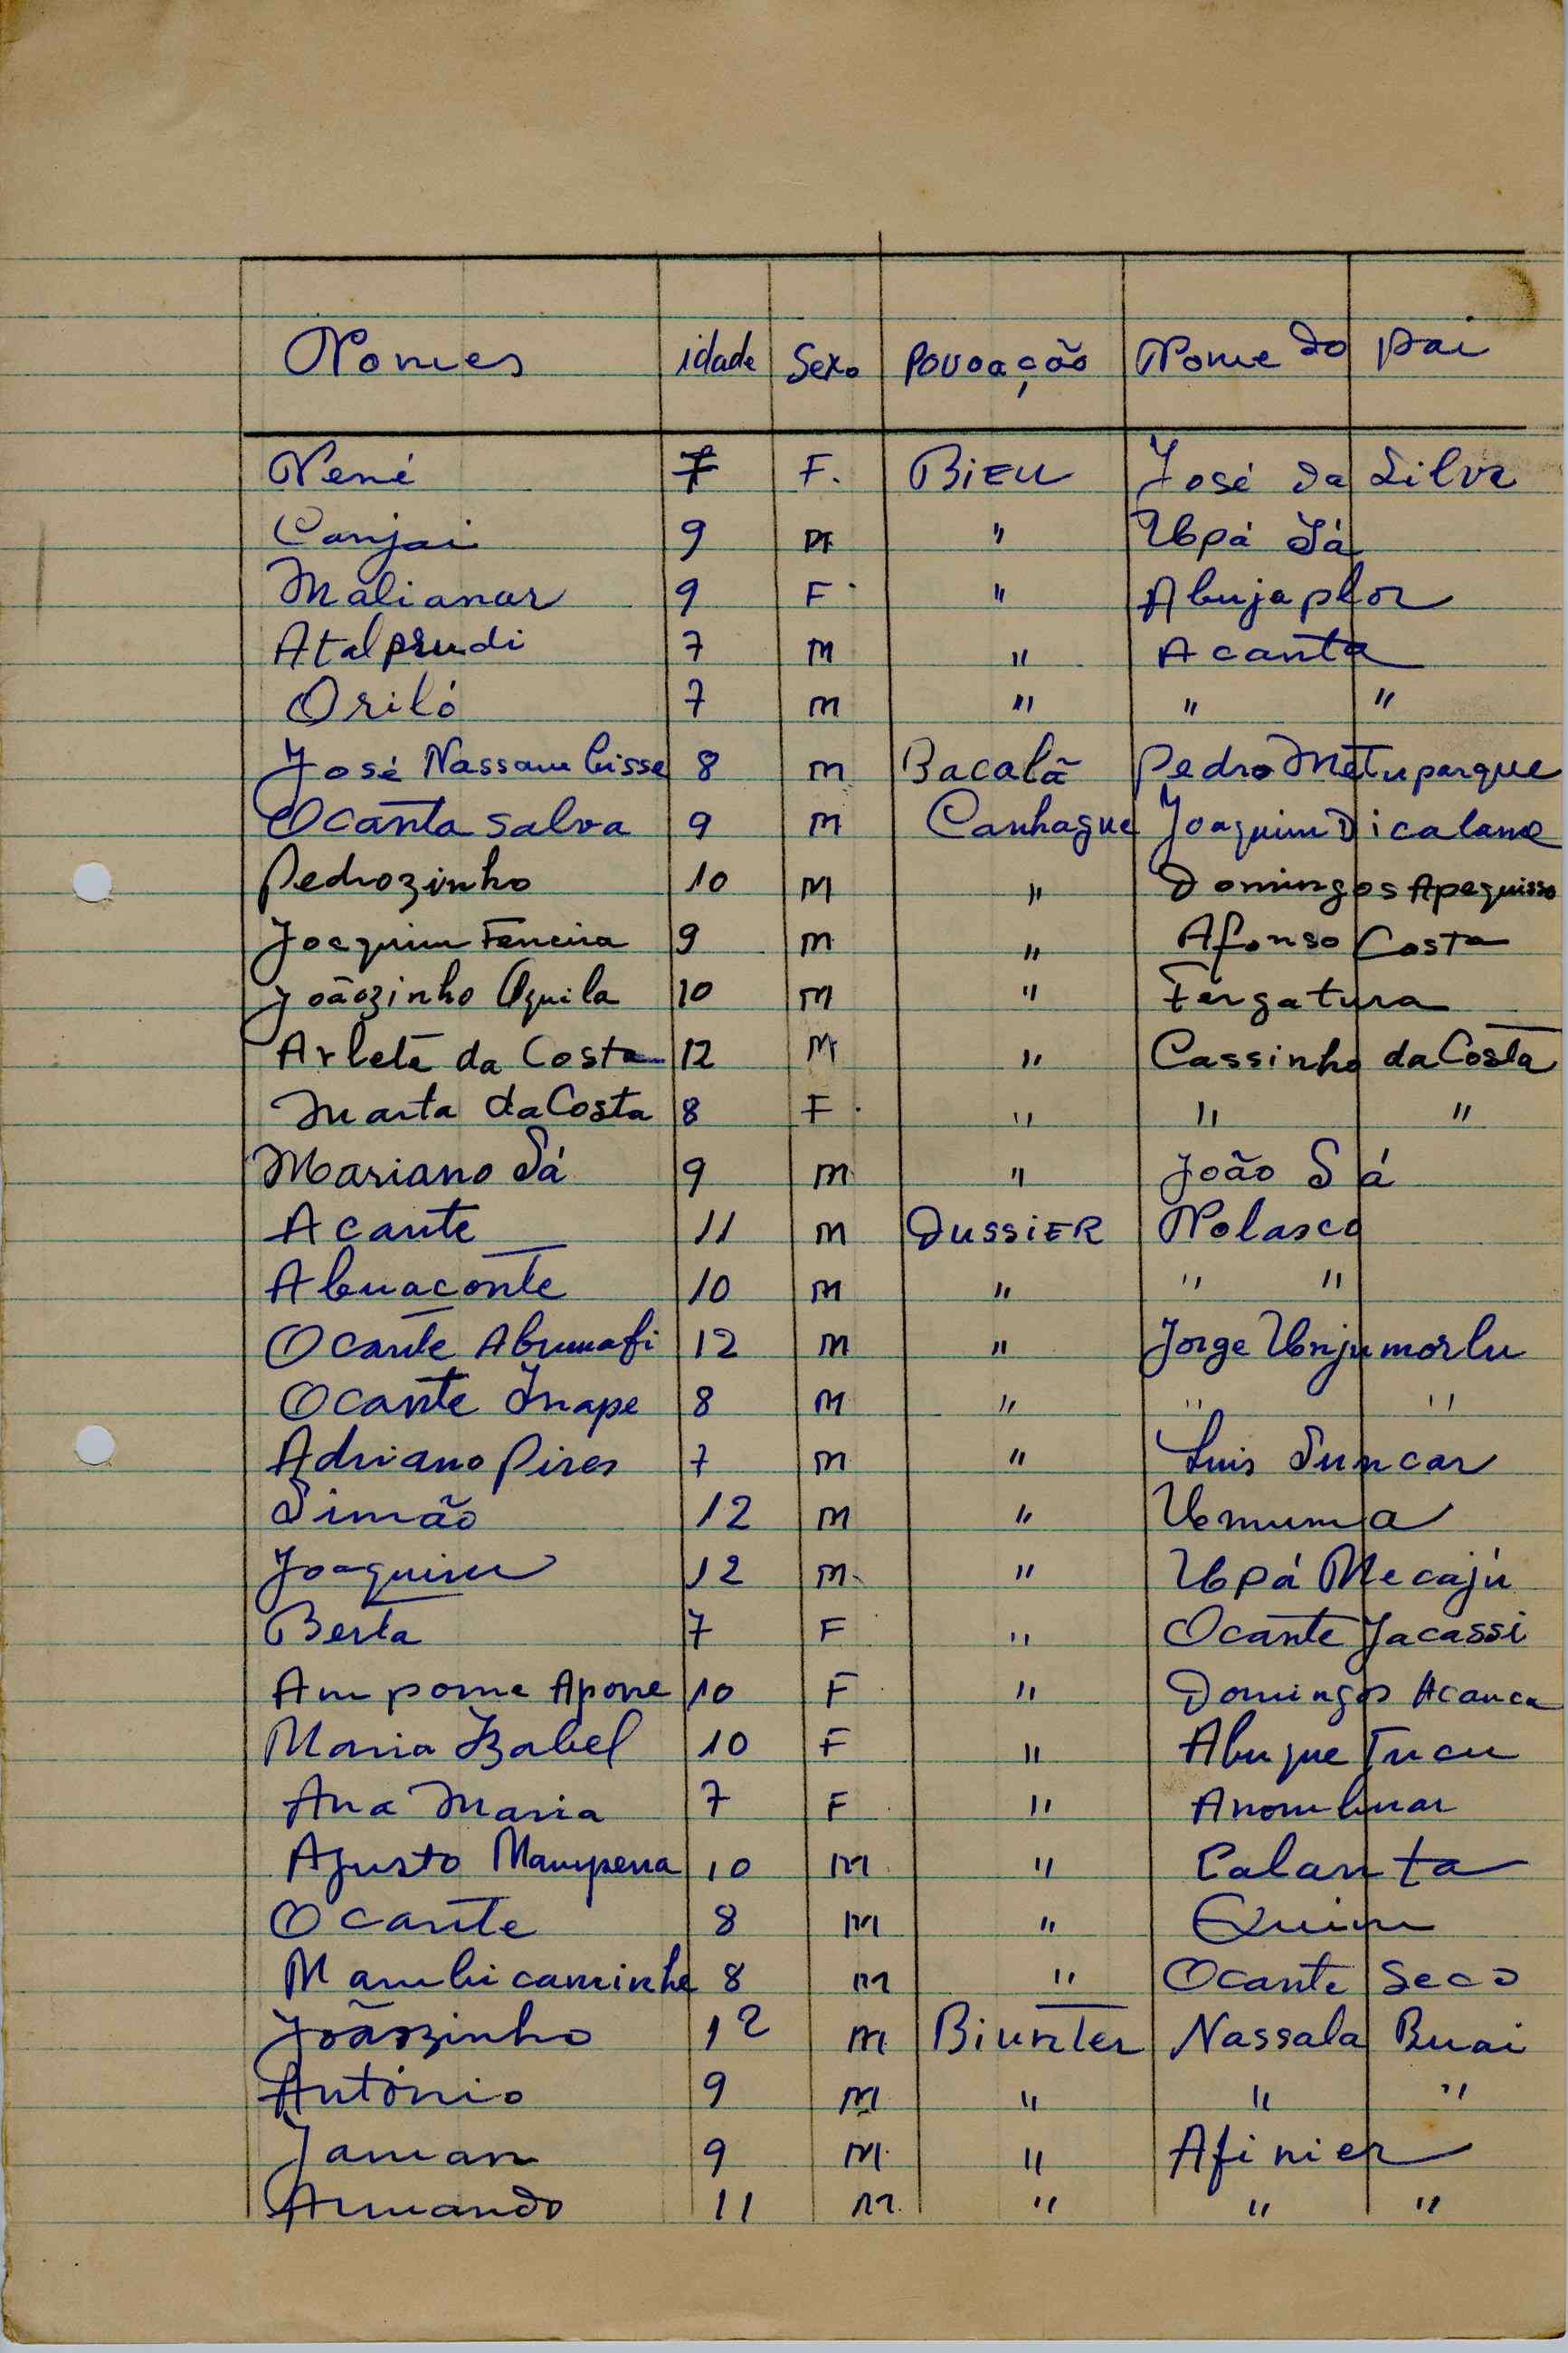 Nomes idade Sexo Povoação Nome do pai
Nené 7 F. BiEU José da Silva
Canjai 9 M " Upá Sá
Malianar 9 F. " Abujaplor
Atalprudi 7 m " Acanta
Oriló 7 m " " "
José Nassambisse 8 m Bacalã Pedro Metuparque
Ocanta salva 9 m Canhague Joaquim Dicalame
Pedrozinho 10 M " Domingos Apequisso
Joaquim Ferreira 9 m " Afonso Costa
Joãozinho Aquila 10 m " Fergatura
Arlete da Costa 12 M " Cassinho da Costa
Marta da Costa 8 F. " " "
Mariano Sá 9 m " João Sá
Acante 11 m DussiER Nolasco
Abuaconte 10 m " " "
Ocante Abumafi 12 m " Jorge Unjumorlu
Ocante Inape 8 m " " "
Adriano Pires 7 m " Luis Suncar
Simão 12 m " Umuma
Joaquim 12 m " Upá Mecajú
Berta 7 F " Ocante Jacassi
Ampome Apone 10 F " Domingos Acanca
Maria Izabel 10 F " Abuque Tucu
Ana Maria 7 F " Anombuar
Agusto Mampena 10 m " Calanta
Ocante 8 m " Quim
Mambicaminhe 8 m " Ocante Seco
Joãozinho 12 m Biunter Nassala Buai
António 9 m " " "
Jaman 9 m " Afinier
Armando 11 m " " "